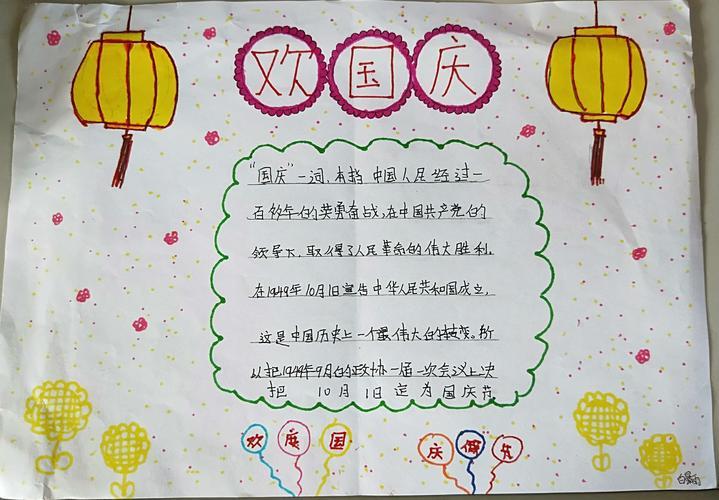 欢国庆
"国庆"一词,本指中国人民经过一
百多年的英勇奋战,在中国共产党的
领导下,取得了人民革命的伟大胜利。
在1949年10月1日宣告中华人民共和国成立,
这是中国历史上一个最伟大的转变。所
以把1949年9月的政协一届一次会议上决
把 10月1日定为国庆节
欢度国
庆